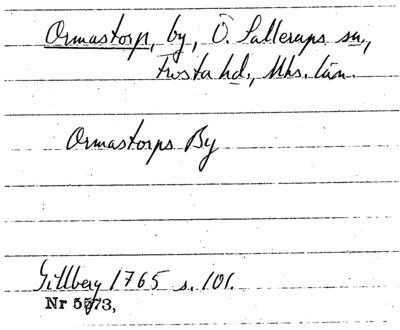 Ormastorp, by, Ö. Sallerups sn.,
Frosta hd., Mhs. län.
Ormastorps By
Gillberg 1765 s. 101.
Nr 5573,